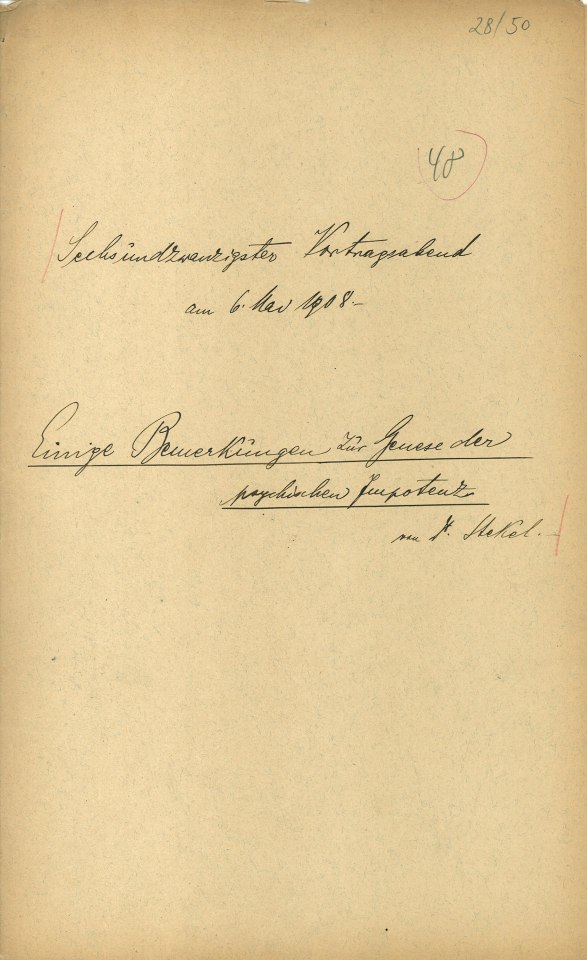 28/50
48
Sechsundzwanzigster Vortragsabend
am 6. Mai 1908.-
Einige Bemerkungen zur Genese der
psychischen Impotenz
von Dr. Stekel.-